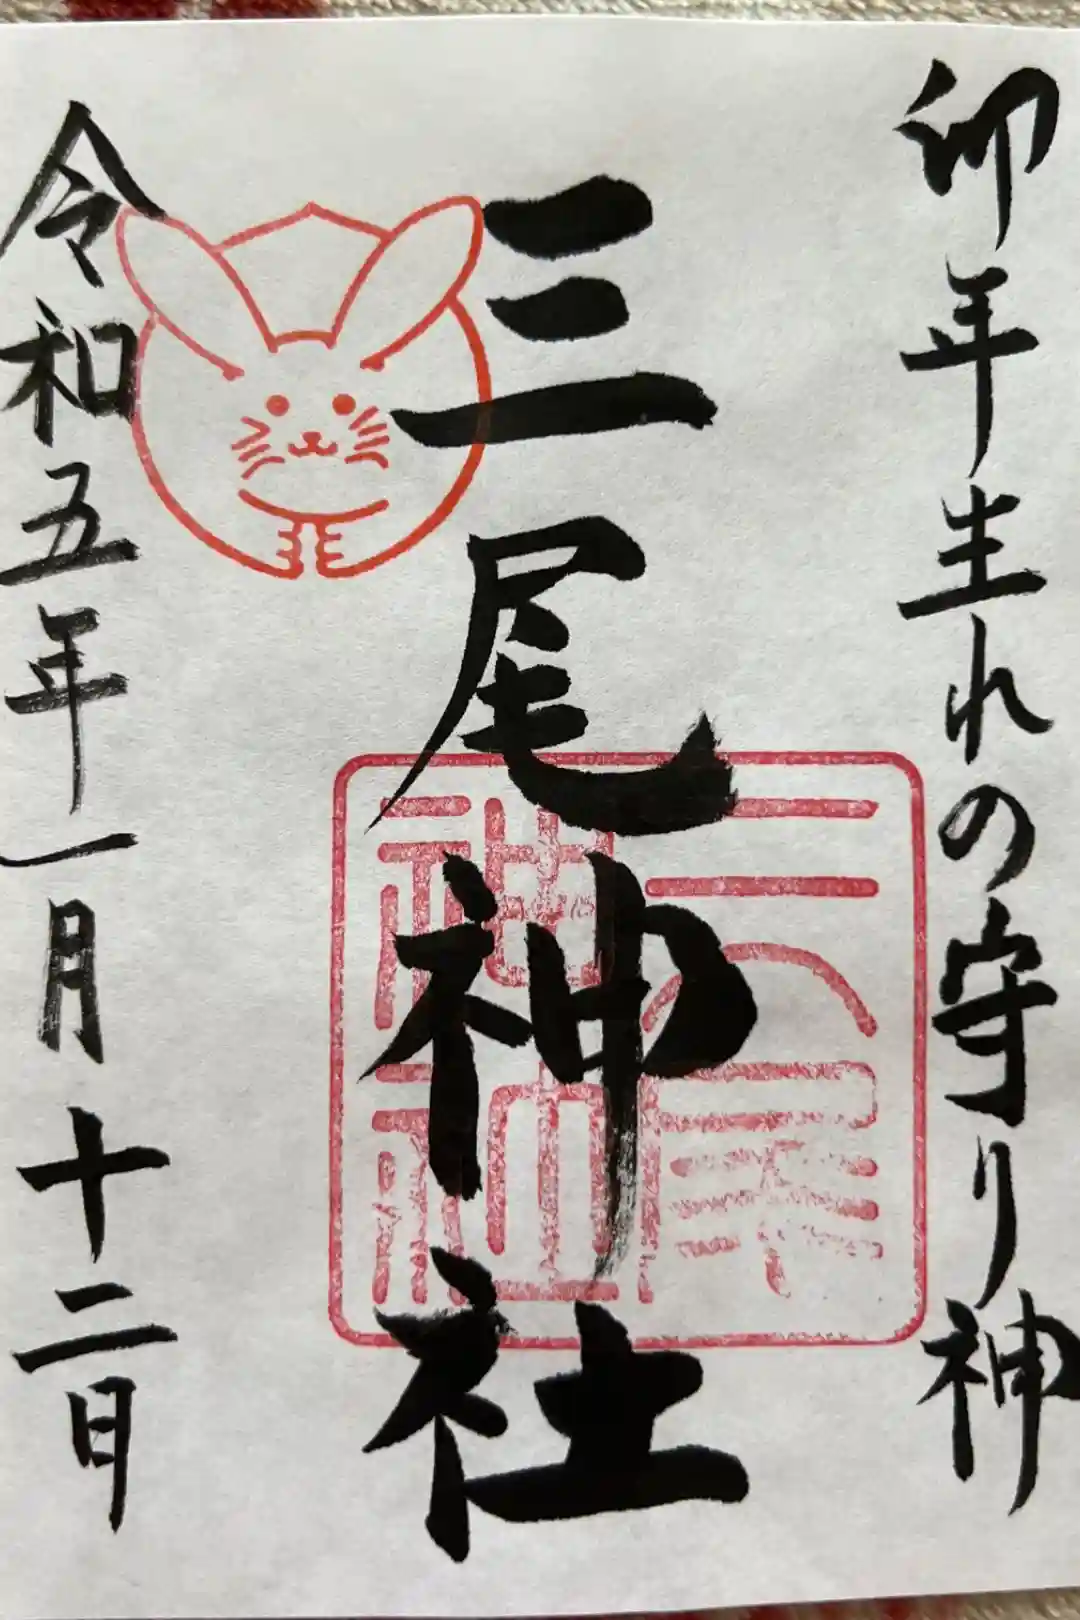 卯年生れの守り神
三尾神社
三尾神社
令和五年一月十二日